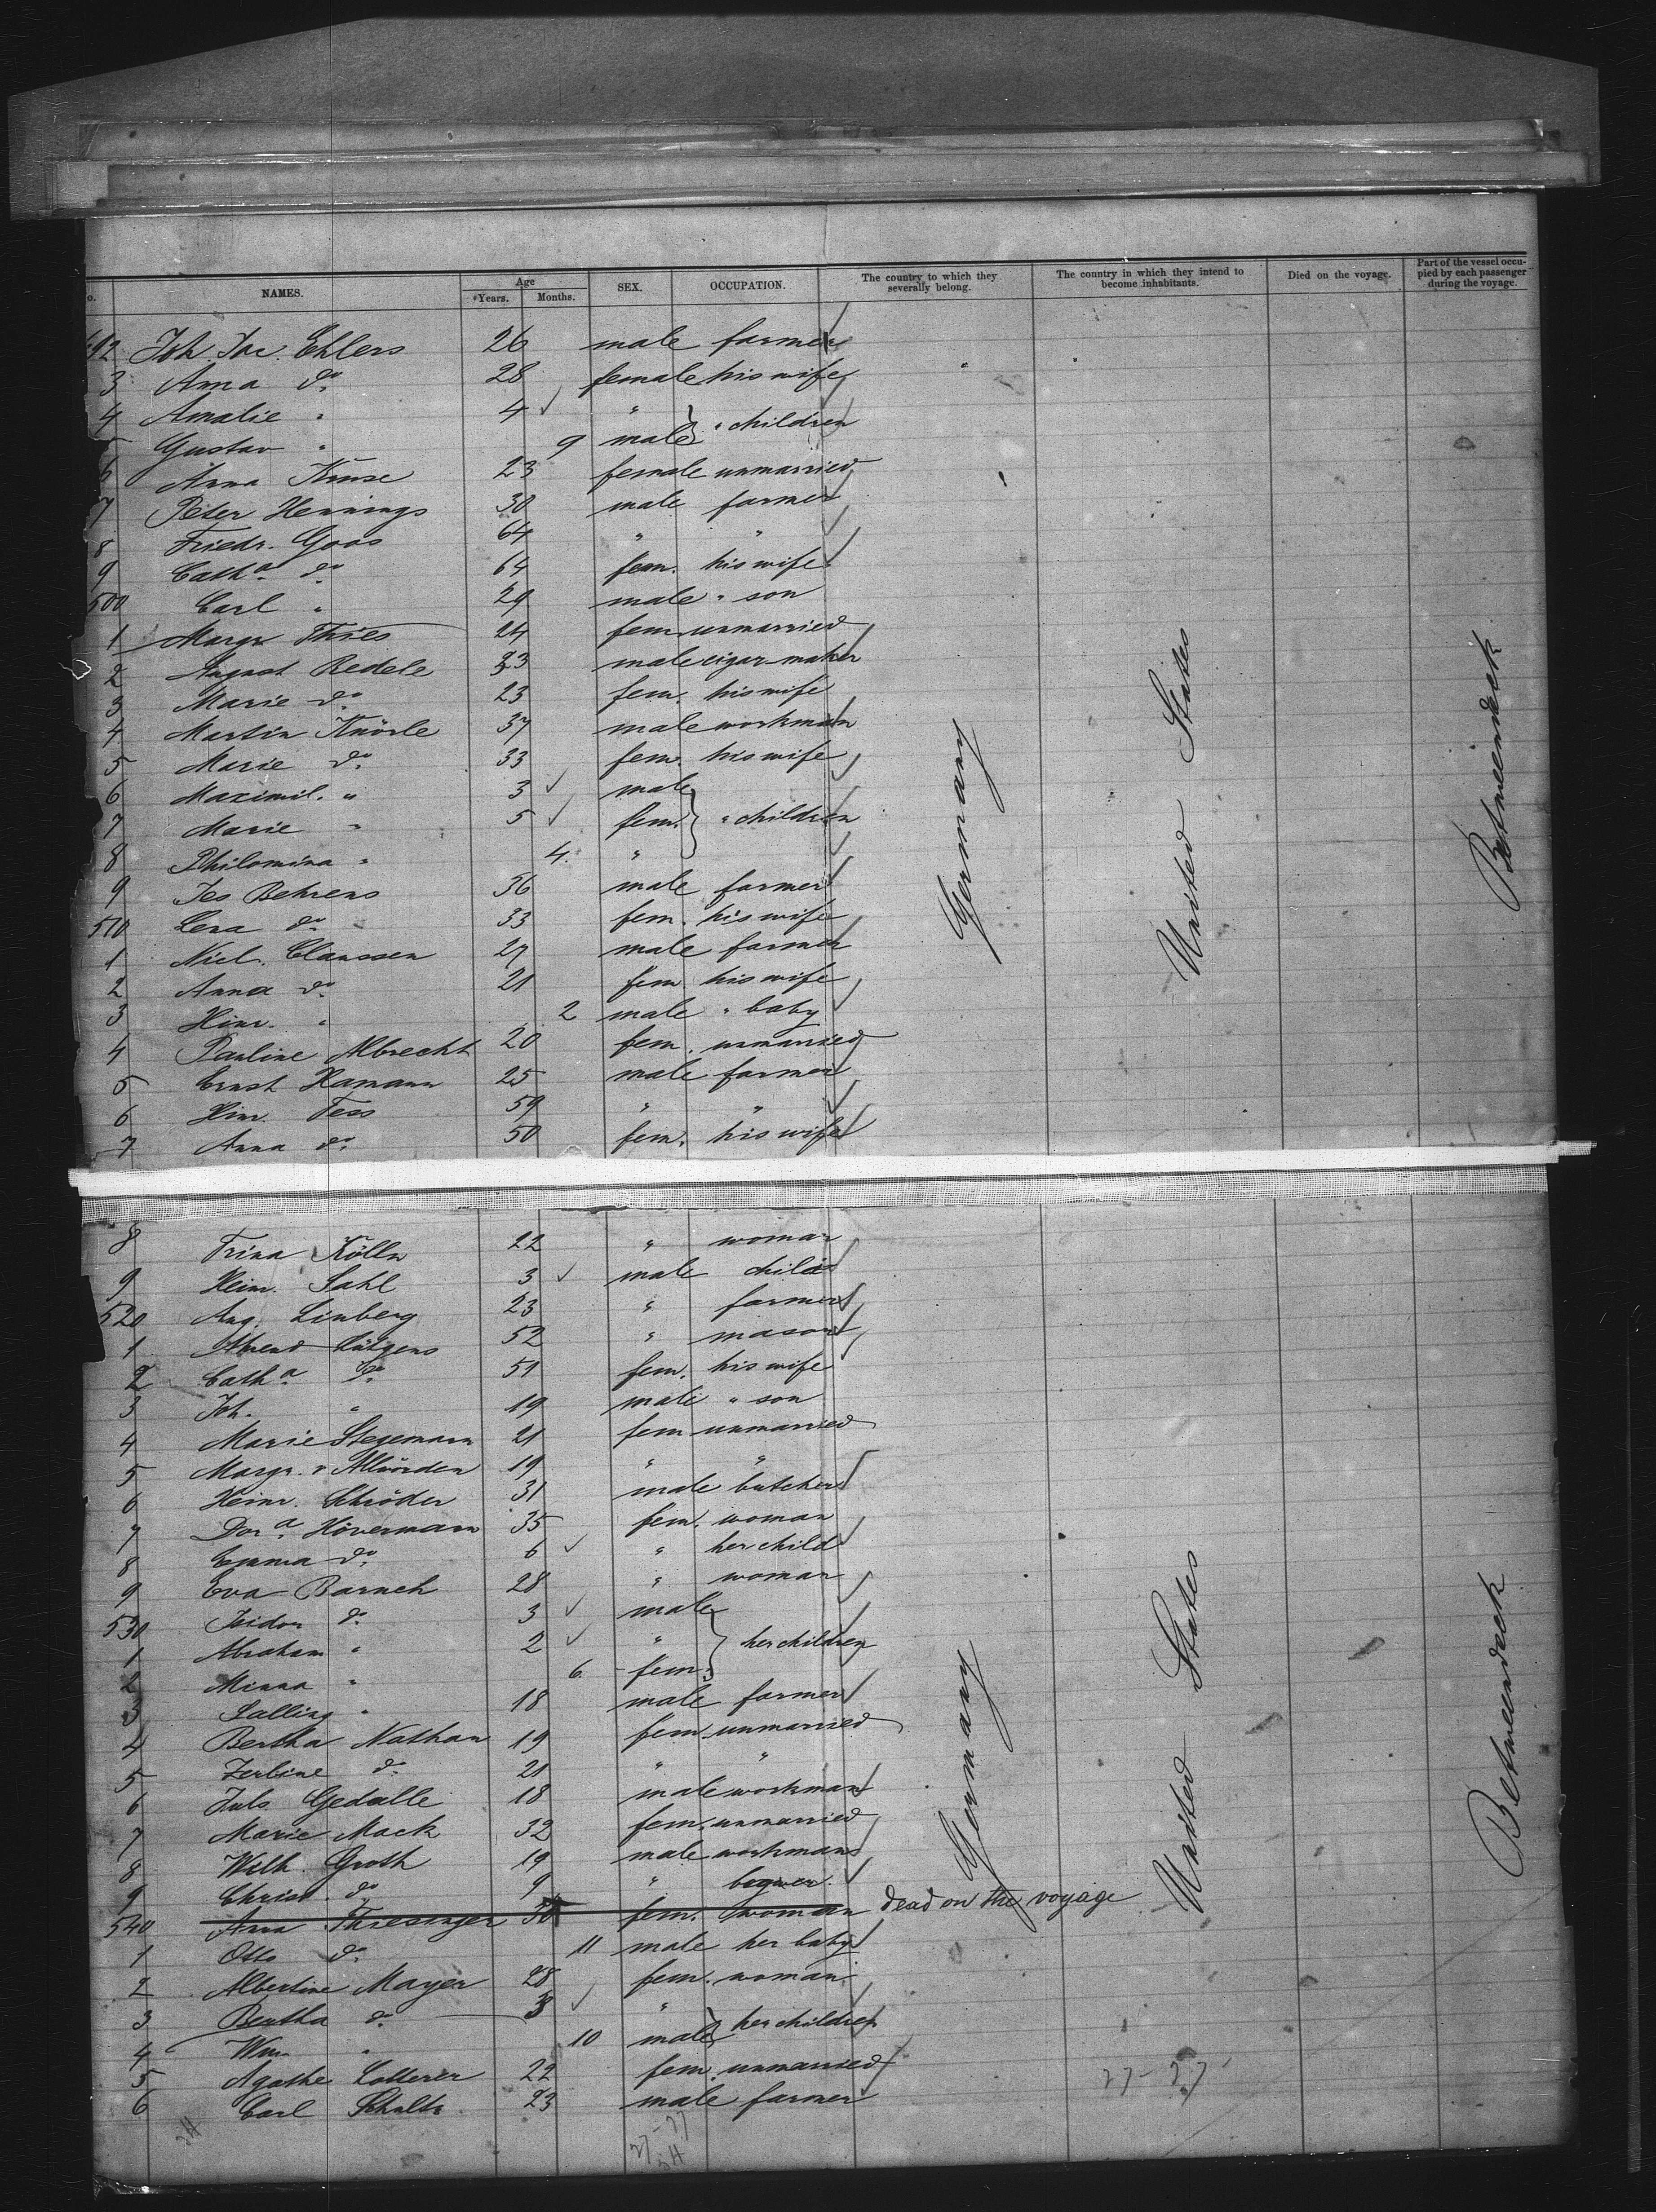 o. NAMES. Age Years. Months. SEX. OCCUPATION. The country to which they severally belong. The country in which they intend to become inhabitants. Died on the voyage. Part of the vessel occupied by each passenger during the voyage.
492 Joh. Joc. Ehlers 26 male farmer
3 Anna do. 28 female his wife
4 Amalie " 4 " " children
5 Gustav " 9 male
6 Anna Kruse 23 female unmarried
7 Peter Hennings 30 male farmer
8 Friedr. Goos 64 " "
9 Catha. do. 64 fem. his wife
500 Carl " 29 male " son
1 Margr. Thies 24 fem. unmarried
2 August Redele 33 male cigar-maker
3 Marie do. 23 fem. his wife
4 Martin Knörle 37 male workman
5 Marie do. 33 fem. his wife
6 Maximil. " 3 male
7 Marie " 5 fem. " children
8 Philomina " 4. "
9 Jes Behrens 36 male farmer
510 Lena do. 33 fem. his wife
1 Nicl. Claussen 27 male farmer
2 Anna do. 21 fem. his wife
3 Hinr. " 2 male " baby
4 Pauline Albrecht 20 fem. unmarried
5 Ernst Hamann 25 male farmer
6 Hinr. Tess 59 " "
7 Anna do. 50 fem. his wife
Germany
United States
Betweendeck
8 Trina Kölln 22 " woman
9 Heinr. Sahl 3 male child
520 Aug. Linberg 23 " farmer
1 Ahrend Lütgens 52 " mason
2 Catha. do. 51 fem. his wife
3 Joh. " 19 male " son
4 Marie Stegemann 21 fem. unmarried
5 Margr. v Allwörden 19 " "
6 Heinr. Schröder 31 male butcher
7 Dora. Hövermann 35 fem. woman
8 Emma do. 6 " her child
9 Eva Baruch 28 " woman
530 Isidor do. 3 male
1 Abraham " 2 " her children
2 Minna " 6. fem.
3 Salling " 18 male farmer
4 Bertha Nathan 19 fem. unmarried
5 Zerline do. 21 " "
6 Juls. Gedalle 18 male workman
7 Marie Mack 32 fem. unmarried
8 Wilh. Groth 19 male workman
9 Christ. do. 9 "
540 Anna Thresinger 30 fem. woman dead on the voyage
1 Otto do. 11 male her baby
2 Albertine Mayer 28 fem. woman
3 Bertha do. 3 " her children
4 Wm. " 10 male
5 Agathe Lotterer 22 fem. unmarried
6 Carl Schultz 23 male farmer
Germany
United States
Betweendeck
27-27
27-27